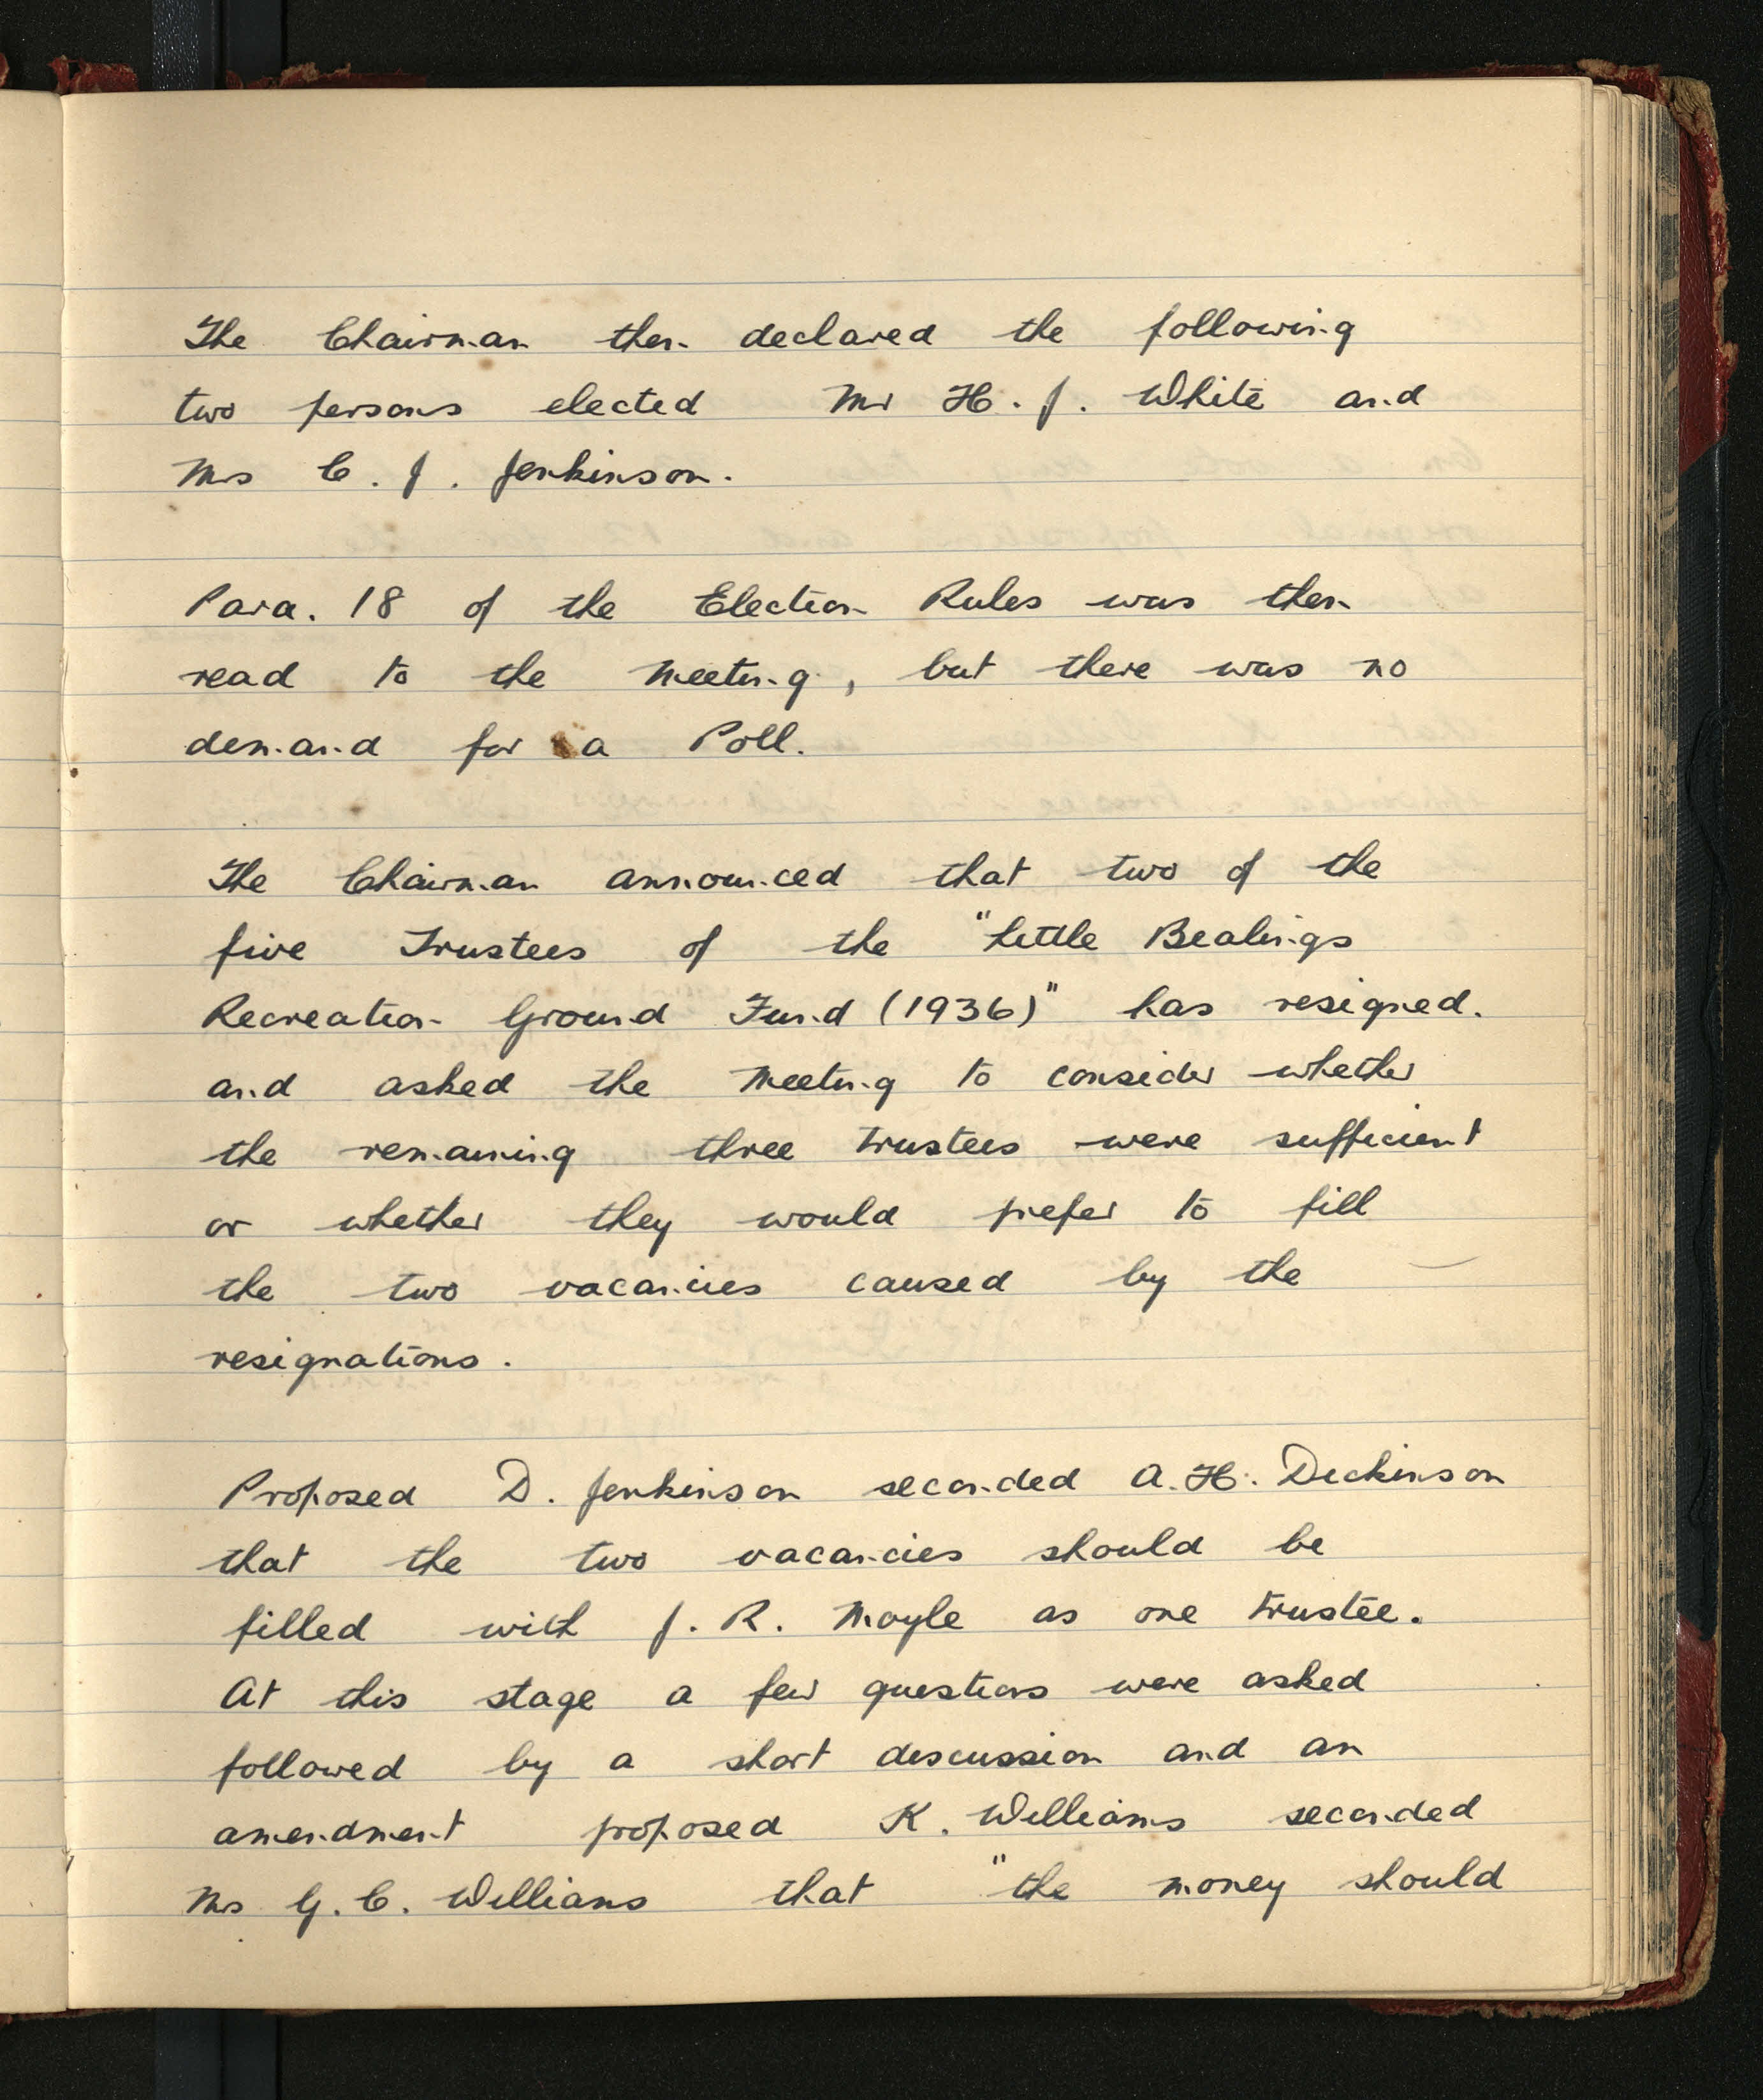 The Chairman then declared the following
two persons elected Mr H. J. White and
Mrs C. J. Jenkinson.
Para. 18 of the Election Rules was then
read to the Meeting, but there was no
demand for a Poll.
The Chairman announced that two of the
five Trustees of the "Little Bealings
Recreation Ground Fund (1936)" has resigned.
and asked the Meeting to consider whether
the remaining three trustees were sufficient
or whether they would prefer to fill
the two vacancies caused by the
resignations.
Proposed D. Jenkinson seconded A. H. Dickinson
that the two vacancies should be
filled with J. R. Moyle as one trustee.
At this stage a few questions were asked
followed by a short discussion and an
amendment proposed K. Williams seconded
Mrs G. C. Williams that "the money should